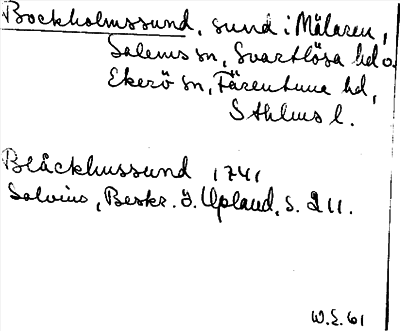 Bockholmssund, sund i Mälaren,
Salems sn, Svartlösa hd o.
Ekerö sn, Färentuna hd,
Sthlms l.
Blåckhussund 1741
Salvius, Beskr. ö. Upland, s. 211.
W.E. 61